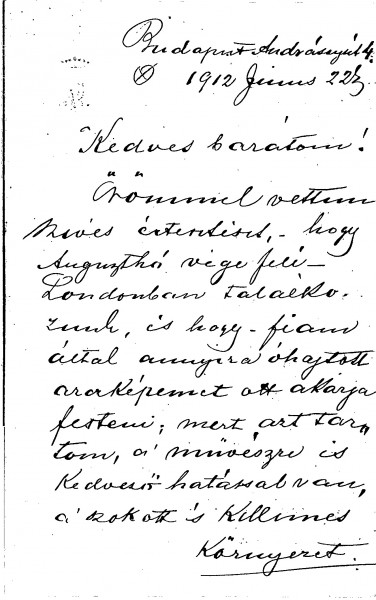 Budapest Andrássy út 4.
1912 Junius 22
Kedves barátom!
Örömmel vettem
szives értesitését, - hogy
Auguszthó vége felé -
Londonban találko-
zunk, és hogy - fiam
által annyira óhajtott
arczképemet ott akarja
festeni; mert azt tar-
tom, a' művészre is
kedvező hatással van,
a' szokott és kellemes
környezet.